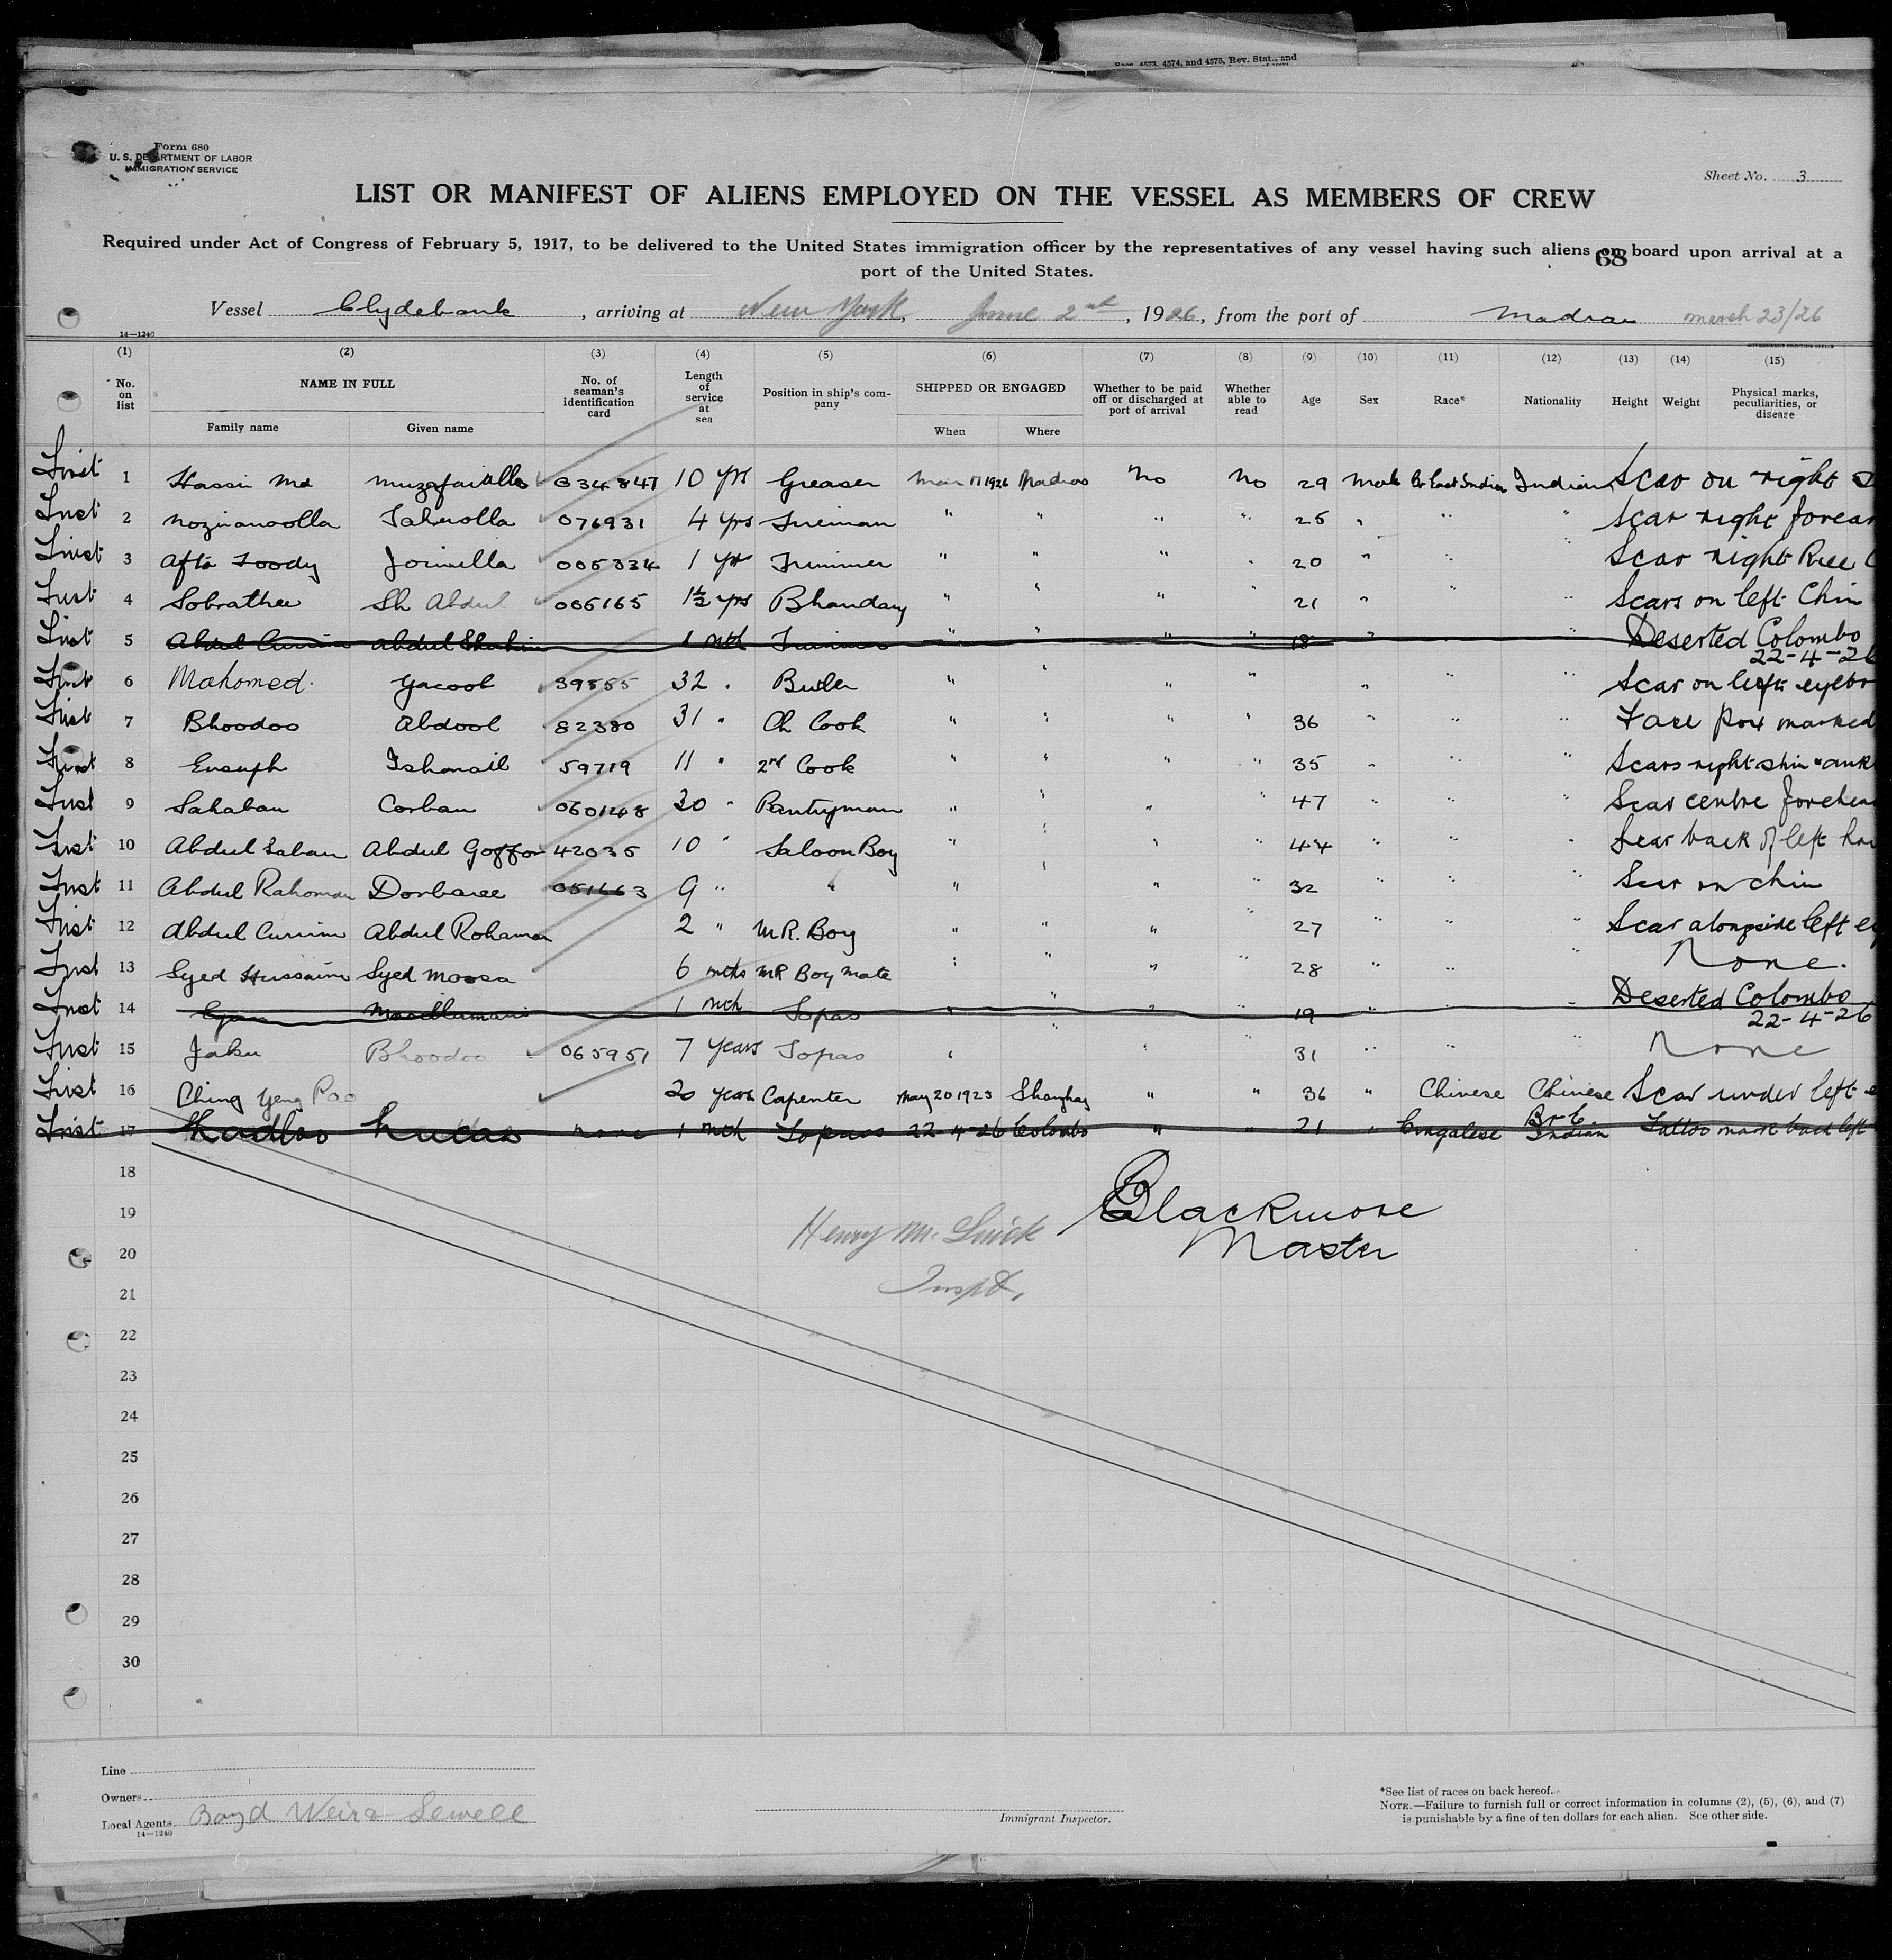 Secs. 4573, 4574, and 4575, Rev. Stat., and
Form 680
U. S. DEPARTMENT OF LABOR
IMMIGRATION SERVICE
Sheet No. 3
LIST OR MANIFEST OF ALIENS EMPLOYED ON THE VESSEL AS MEMBERS OF CREW
Required under Act of Congress of February 5, 1917, to be delivered to the United States immigration officer by the representatives of any vessel having such aliens on board upon arrival at a
68
port of the United States.
Vessel Clydebank, arriving at New York, June 2nd, 1926, from the port of Madras march 23/26
14—1240
(1) (2) (3) (4) (5) (6) (7) (8) (9) (10) (11) (12) (13) (14) (15)
No. on list NAME IN FULL No. of seaman's identification card Length of service at sea Position in ship's company SHIPPED OR ENGAGED Whether to be paid off or discharged at port of arrival Whether able to read Age Sex Race* Nationality Height Weight Physical marks, peculiarities, or disease
Family name Given name When Where
1 Hassin Md 034847 10 yrs Greaser Mar 17 1926 Madras No No 29 Male Br East Indian Indian Scar on right
2 076931 4 yrs Fireman " " " " 25 " " " Scar right forear
3 1 yr Trimmer " " " " 20 " " " Scar right
4 Sobrathee Sh Abdul 006165 1½ yrs Bhandary " " " " 21 " " " Scars on left Chin
5 1 mth Trimmer " " " " 18 " " " Deserted Colombo
22-4-26
6 Mahomed Yacoob 39555 32 " Butler " " " " " " " Scar on left eyebr
7 Bhoodoo Abdool 82380 31 " Ch Cook " " " " 36 " " " Face Pox marked
8 Eusuph Ishmail 59719 11 " 2nd Cook " " " " 35 " " " Scars right shin & ank
9 Sahaban Corban 060148 30 " Pantryman " " " " 47 " " " Scar centre forehea
10 Abdul Saban Abdul Goffor 42035 10 " Saloon Boy " " " " 44 " " " Scar back of left han
11 Abdul Rahoman Dorbaree 051663 9 " " " " " " 32 " " " Scar on chin
12 Abdul Curim Abdul Rohaman 2 " M.R. Boy " " " " 27 " " " Scar alongside left ey
13 Syed Hussain Syed Moosa 6 mths MR Boy Mate " " " " 28 " " " None.
14 1 mth Topas " " " " 19 " " " Deserted Colombo
22-4-26
15 Jaku Bhoodoo 065951 7 years Topas " " " " 31 " " " None
16 Ching Yeng Pao 20 years Carpenter May 20 1923 Shanghay " " 36 " Chinese Chinese Scar under left e
17 Lucas none 1 mth Topas 22-4-26 Colombo " " 21 " Cingalese Br E Indian Tattoo mark back left
18
Blackmore
19
Henry M.
20
Master
21
Inspt.
22
23
24
25
26
27
28
29
30
Line
Owners
Local Agents Boyd Weir & Sewell
14—1240
Immigrant Inspector.
*See list of races on back hereof.
NOTE.—Failure to furnish full or correct information in columns (2), (5), (6), and (7)
is punishable by a fine of ten dollars for each alien. See other side.